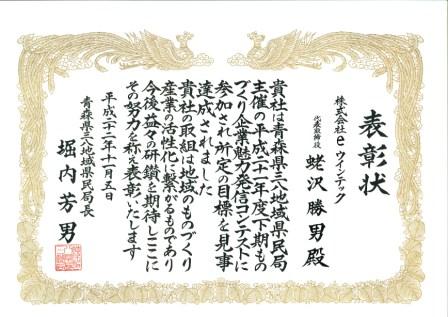 表彰状
株式会社eウインテック
代表取締役
蛯沢勝男殿
貴社は青森県三八地域県民局
主催の平成二十二年度下期もの
づくり企業魅力発信コンテストに
参加され所定の目標を見事
達成されました
貴社の取組は地域のものづくり
産業の活性化に繋がるものであり
今後益々の研鑽を期待しここに
その努力を称え表彰いたします
平成二十二年十一月五日
青森県三八地域県民局長
堀内芳男